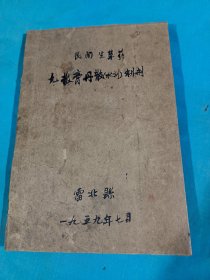 民间生草药
丸散膏丹散(水剂)制剂
雷北县
一九五九年七月